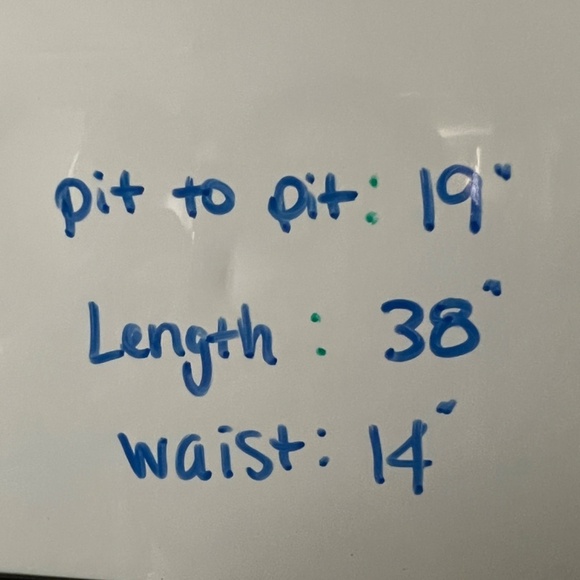 pit to pit: 19"
Length: 38"
waist: 14"